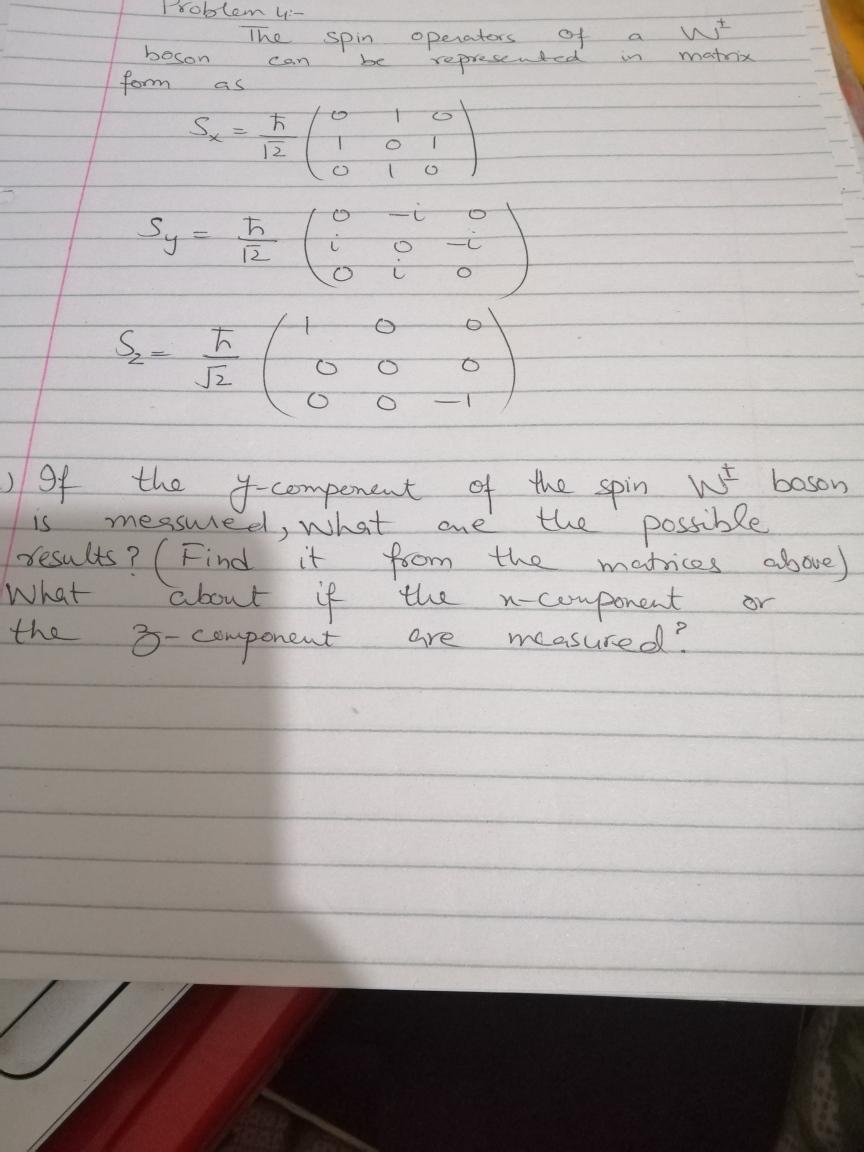 Problem 4:-
The spin operators of a W±
boson can be represented in matrix
form as
Sx = ħ/√2 ( 0 1 0
1 0 1
0 1 0 )
Sy = ħ/√2 ( 0 -i 0
i 0 -i
0 i 0 )
Sz = ħ/√2 ( 1 0 0
0 0 0
0 0 -1 )
) If the y-component of the spin W± boson
is measured, what are the possible
results? (Find it from the matrices above)
What about if the x-component or
the z-component are measured?